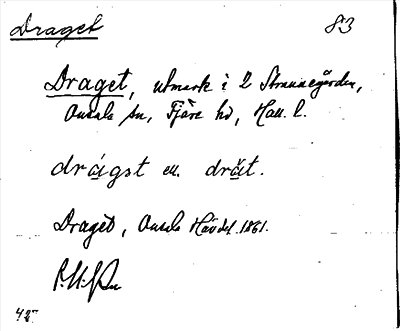 Draget 83
Draget, utmark i 2 Strannegården,
Onsala sn, Fjäre hd, Hall. l.
drágst el. drăt.
Draget, Onsala Häv.bd. 1861.
42